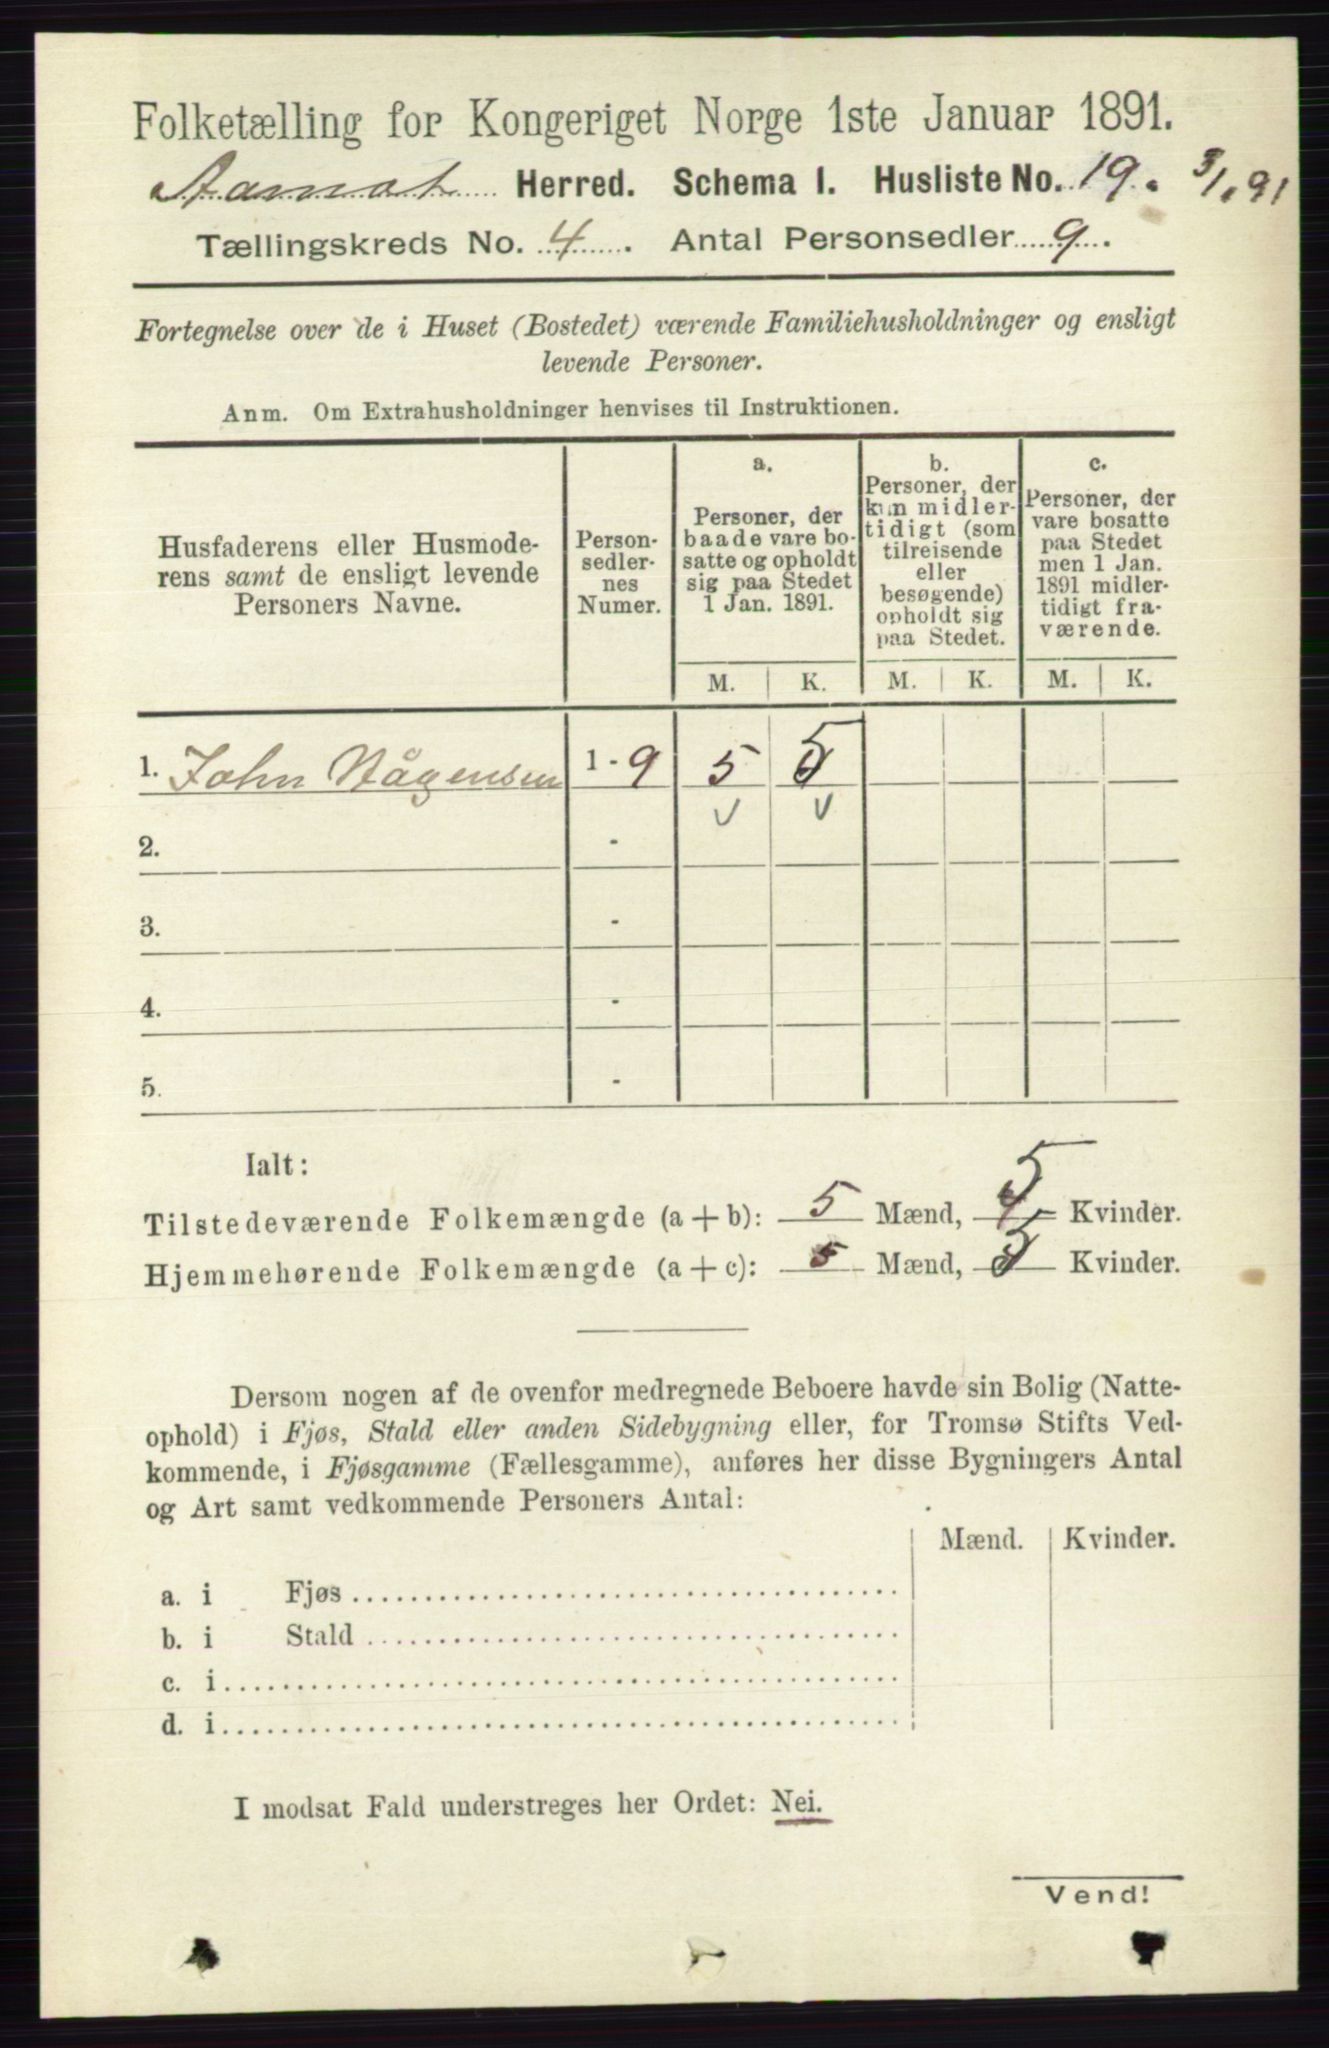 Folketælling for Kongeriget Norge 1ste Januar 1891.
Aamot Herred. Schema I. Husliste No. 19. 3/1.91
Tællingskreds No. 4. Antal Personsedler 9.
Fortegnelse over de i Huset (Bostedet) værende Familiehusholdninger og ensligt
levende Personer.
Anm. Om Extrahusholdninger henvises til Instruktionen.
Husfaderens eller Husmode-
rens samt de ensligt levende
Personers Navne.
Person-
sedler-
nes
Numer.
a.
Personer, der
baade vare bo-
satte og opholdt
sig paa Stedet
1 Jan. 1891.
b.
Personer, der
kun midler-
tidigt (som
tilreisende
eller
besøgende)
opholdt sig
paa Stedet.
c.
Personer, der
vare bosatte
paa Stedet
men 1 Jan.
1891 midler-
tidigt fra-
værende.
M. K. M. K. M. K.
1. John Hågensen 1-9 5 5
2. -
3. -
4. -
5. -
Ialt:
Tilstedeværende Folkemængde (a+b): 5 Mænd, 5 Kvinder.
Hjemmehørende Folkemængde (a+c): 5 Mænd, 5 Kvinder.
Dersom nogen af de ovenfor medregnede Beboere havde sin Bolig (Natte-
ophold) i Fjøs, Stald eller anden Sidebygning eller, for Tromsø Stifts Ved-
kommende, i Fjøsgamme (Fællesgamme), anføres her disse Bygningers Antal
og Art samt vedkommende Personers Antal:
Mænd. Kvinder.
a. i Fjøs
b. i Stald
c. i
d. i
I modsat Fald understreges her Ordet: Nei.
Vend!